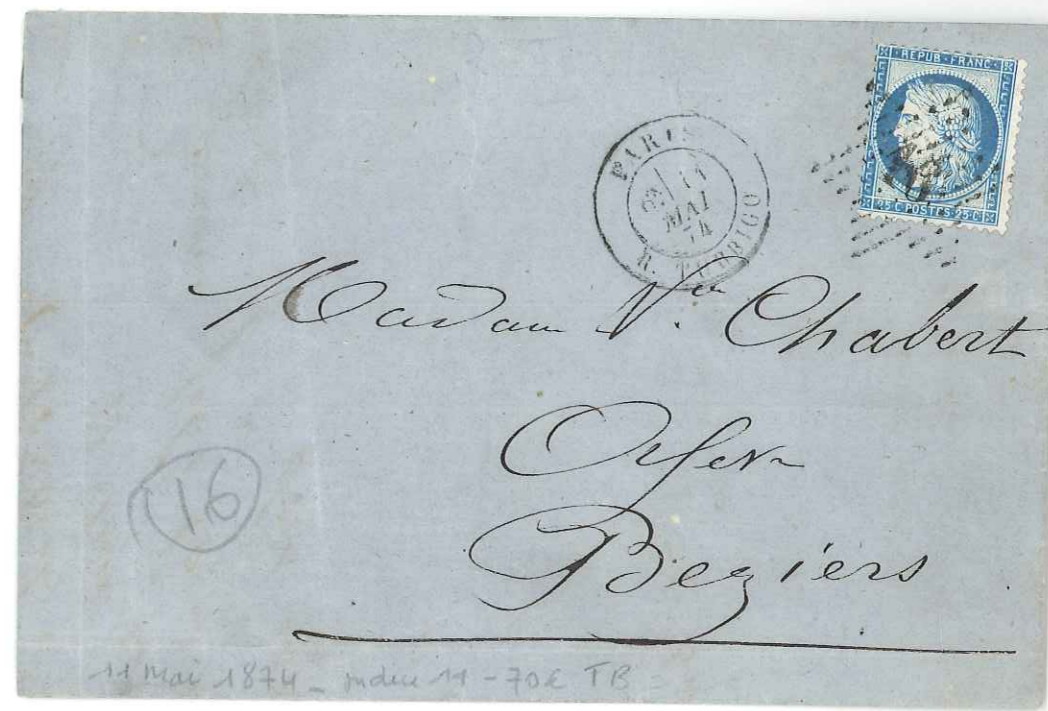 REPUB · FRANC
25 C POSTES 25 C
PARIS
MAI
74
R. TURBIGO
Madame Vve Chabert
Orfevre
Beziers
116
11 Mai 1874 _ indice 11 - 70€ TB